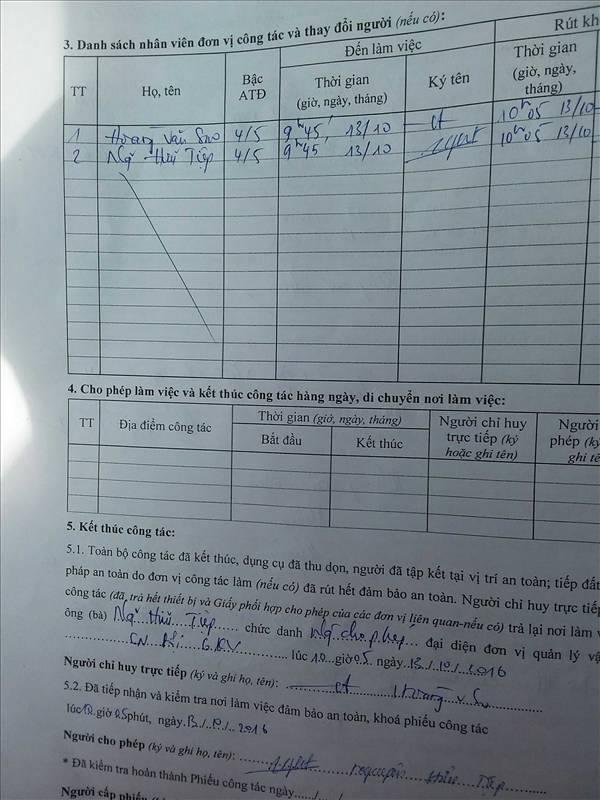 3. Danh sách nhân viên đơn vị công tác và thay đổi người (nếu có):
TT Họ, tên Bậc ATĐ Đến làm việc Rút kh
Thời gian (giờ, ngày, tháng) Ký tên Thời gian (giờ, ngày, tháng)
1 Hoàng Văn 4/5 9h45, 13/10 10h05 13/10
2 Ng~ Hữu Tiệp 4/5 9h45 13/10 10h05 13/10
4. Cho phép làm việc và kết thúc công tác hàng ngày, di chuyển nơi làm việc:
TT Địa điểm công tác Thời gian (giờ, ngày, tháng) Người chỉ huy trực tiếp (ký hoặc ghi tên) Người phép (ký ghi tê
Bắt đầu Kết thúc
5. Kết thúc công tác:
5.1. Toàn bộ công tác đã kết thúc, dụng cụ đã thu dọn, người đã tập kết tại vị trí an toàn; tiếp đất
pháp an toàn do đơn vị công tác làm (nếu có) đã rút hết đảm bảo an toàn. Người chỉ huy trực tiếp
công tác (đã trả hết thiết bị và Giấy phối hợp cho phép của các đơn vị liên quan-nếu có) trả lại nơi làm
ông (bà) Ng~ Hữu Tiệp chức danh Ng~ cho phép đại diện đơn vị quản lý vậ
CN 6 KV lúc 10 giờ 05 ngày 13/10/2016
Người chỉ huy trực tiếp (ký và ghi họ, tên): Hoàng V.
5.2. Đã tiếp nhận và kiểm tra nơi làm việc đảm bảo an toàn, khoá phiếu công tác
lúc 10 giờ 05 phút, ngày 13/10/2016
Người cho phép (ký và ghi họ, tên): Nguyễn Hữu Tiệp
* Đã kiểm tra hoàn thành Phiếu công tác ngày....../....../
Người cấp phiếu